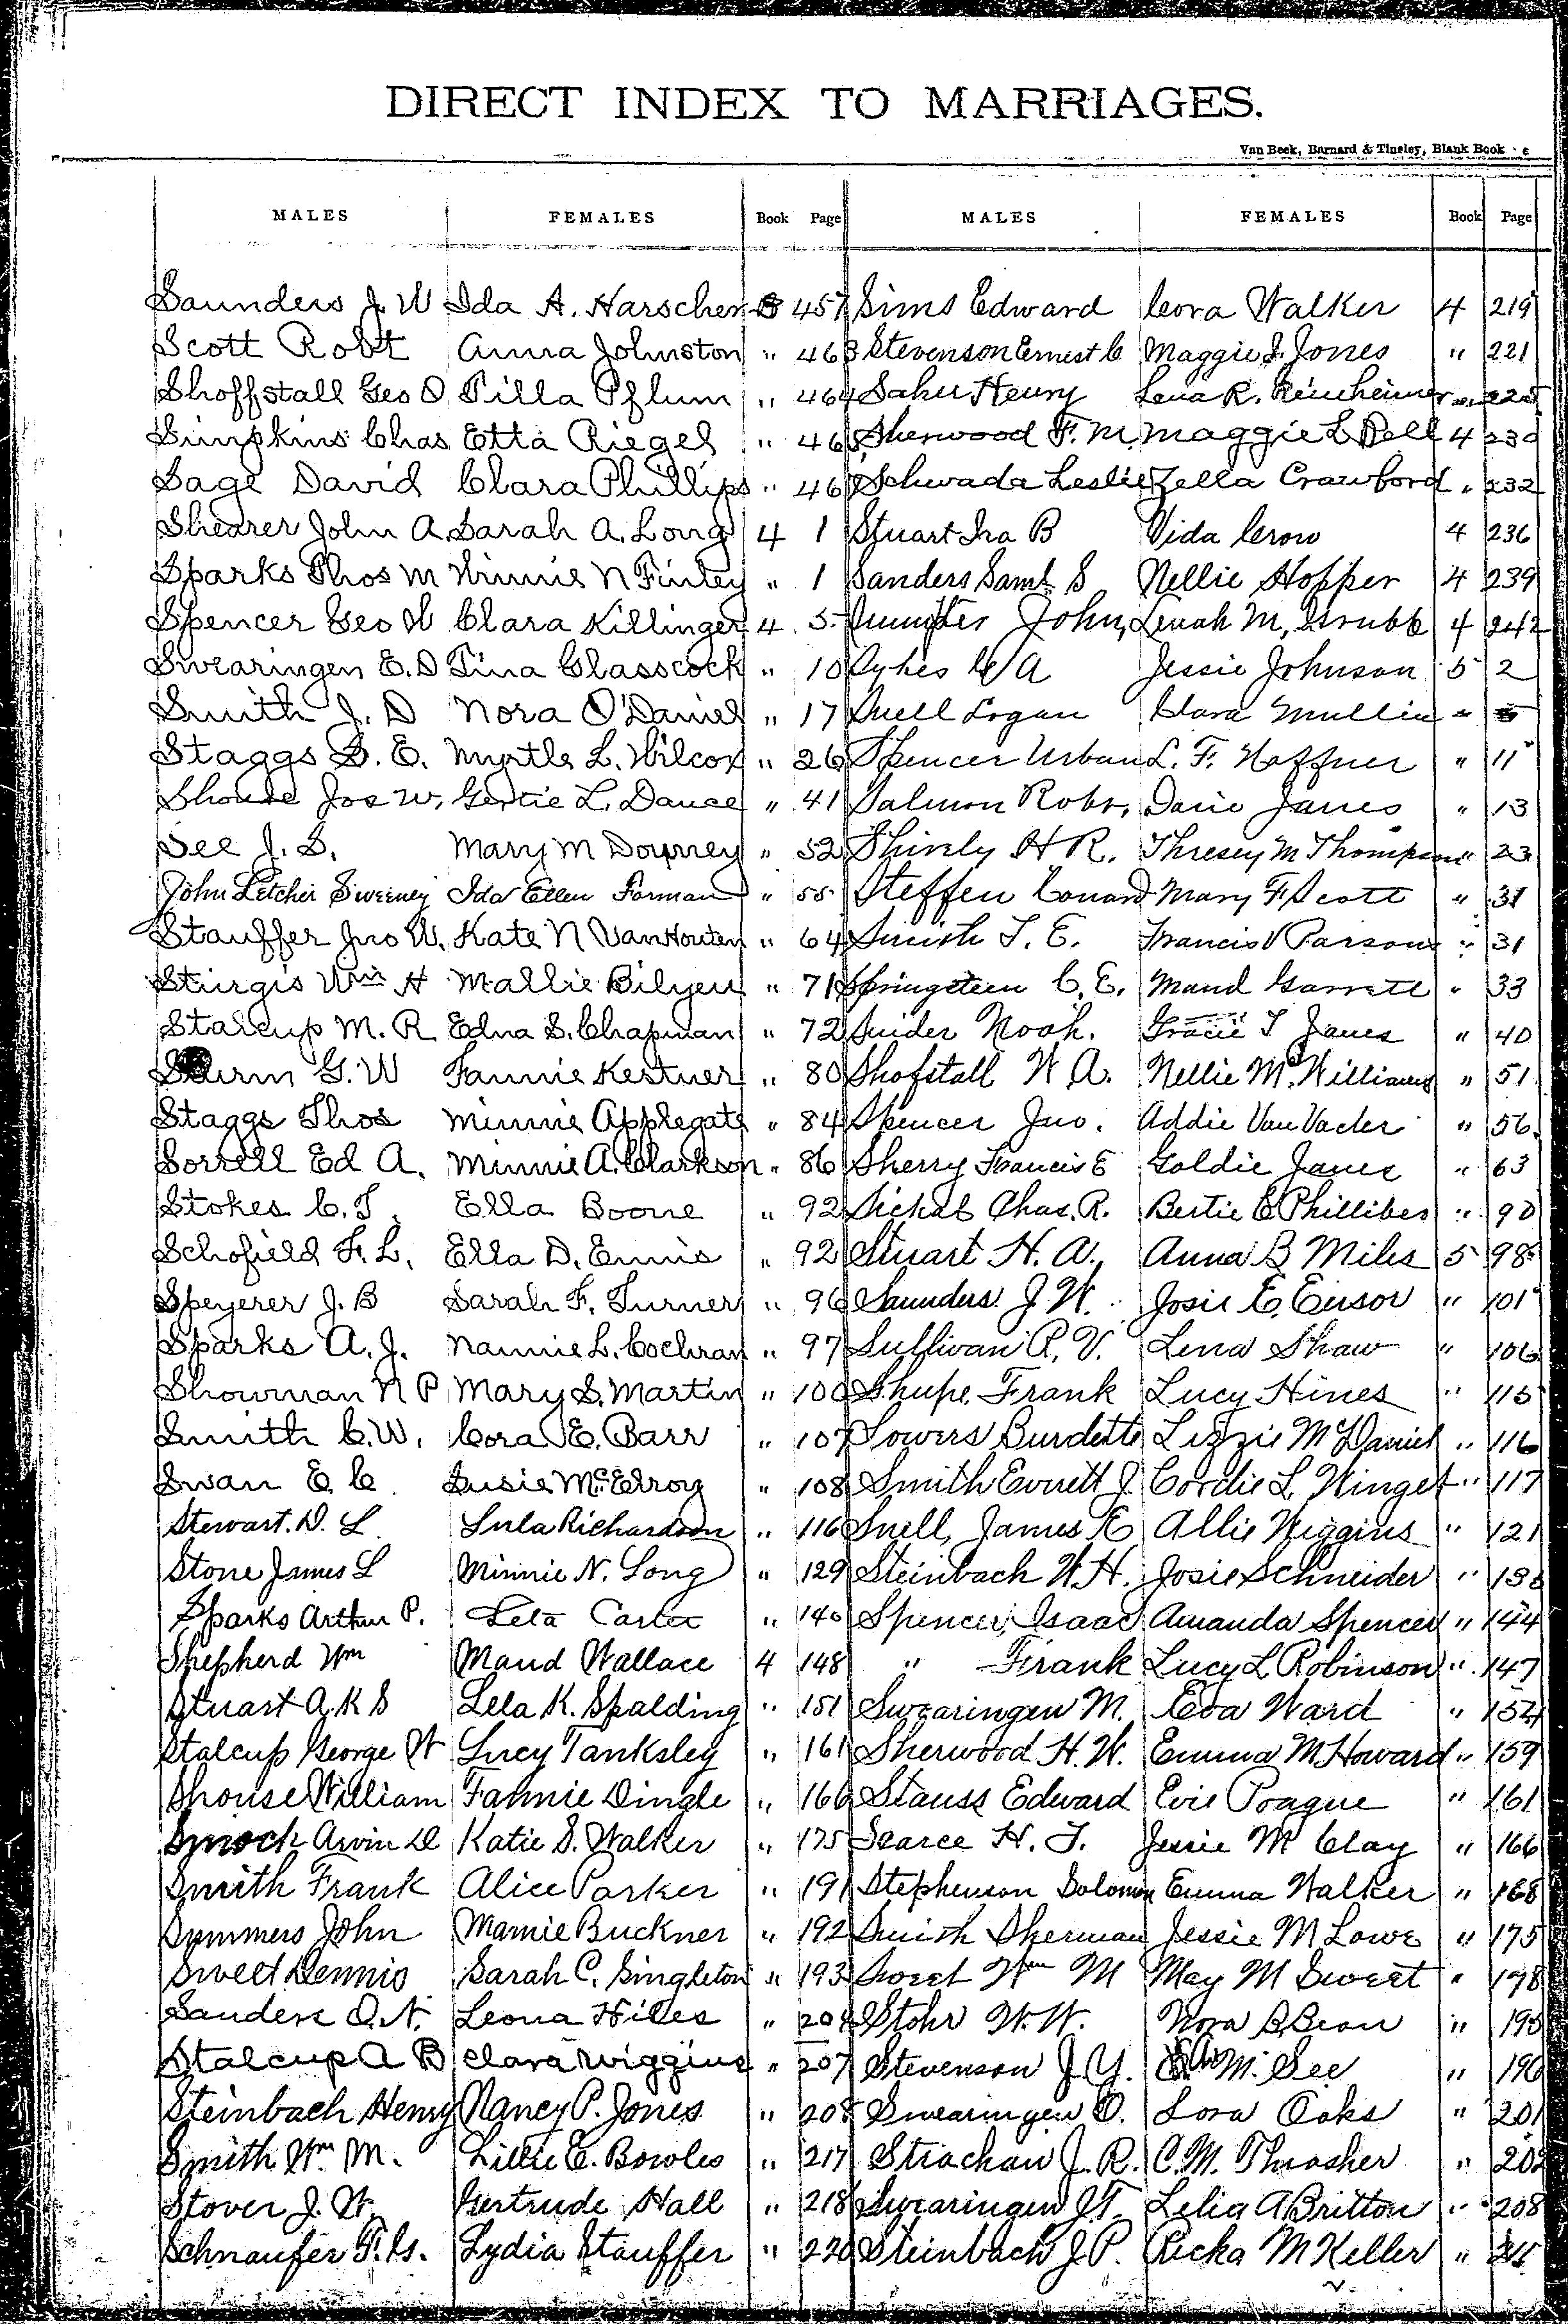 DIRECT INDEX TO MARRIAGES.
Van Beek, Barnard & Tinsley, Blank Book
MALES FEMALES Book Page MALES FEMALES Book Page
Saunders J. W Ida A. Harscher 457 Sims Edward Cora Walker 4 219
Scott Robt Anna Johnston " 463 Stevenson Ernest C Maggie J. Jones " 221
Shoffstall Geo O Tilla Pflum " 464 Saher Henry Lena R. 225
Simpkins Chas Etta Riegel " 465 Sherwood F. M. Maggie L Dell 4 230
Sage David Clara Phillips " 468 Schwada Leslie Zella Crawford " 232
Shearer John A. Sarah A. Long 4 1 Stuart Ira B Vida Crow 4 236
Sparks Thos M Winnie N Finley " 1 Sanders Saml. S Nellie Hopper 4 239
Spencer Geo W Clara Killinger 4 5 Sumpter John, Lenah M, Grubb 4 242
Swearingen E. D Tina Glasscock " 10 Sykes A Jessie Johnson 5 2
Smith J. D Nora O'Daniel " 17 Snell Logan Clara Mullin " 5
Staggs S. E. Myrtle L. Wilcox " 26 Spencer Urban L. F. Haffner " 11
Shouse Jos W. Gertie L. Dance " 41 Salmon Robt, Janes " 13
See J. S. Mary M Downey " 52 Shively H R. Thresey M Thompson " 23
John Letcher Sweeney Ida Ellen Forman " 55 Steffen Conard Mary F Scott " 31
Stauffer Jno W. Kate N VanHouten " 64 Smith T. E. Francis V Parsons " 31
Sturgis Wm H Mallie Bilyeu " 71 Springsteen C. E. Maud Garrett " 33
Stalcup M. R Edna S. Chapman " 72 Snider Noah. Gracie T Janes " 40
G. W Fannie Kestner " 80 Shofstall W A. Nellie McWilliams " 51
Staggs Thos Minnie Applegate " 84 Spencer Jno. Addie Van Vacter " 56
Sorrell Ed A. Minnie A. Clarkson " 86 Sherry Francis E Goldie Janes " 63
Stokes C. T. Ella Boone " 92 Sickab Chas. R. Bertie E Philliber " 90
Schofield F. L. Ella D. Ennis " 92 Stuart H. A. Anna B Miles 5 98
Speyerer J. B Sarah F. Turner " 96 Saunders J. W. Josie E. Ensor " 101
Sparks A. J. Nannie L. Cochran " 97 Sullivan P. V. Lena Shaw " 106
Showman N P Mary S. Martin " 100 Shupe Frank Lucy Hines " 115
Smith C. W. Cora E. Barr " 107 Sowers Burdette Lizzie McDaniel " 116
Swan E. C. Susie McElroy " 108 Smith Everett J. Cordie L Winget " 117
Stewart. D. L Lula Richardson " 116 Snell, James E Allie Wiggins " 121
Stone James L Minnie N. Long " 129 Steinbach W. H. Josie Schneider " 136
Sparks Arthur P. Leta Carter " 140 Spencer, Isaac Amanda Spencer " 144
Shepherd Wm Maud Wallace 4 148 " Frank Lucy L Robinson " 147
Stuart A K S Lela K. Spalding " 151 Swearingen M. Eva Ward " 154
Stalcup George W Lucy Tanksley " 161 Sherwood H. W. Emma M. Howard " 159
Shouse William Fannie Dingle " 166 Stauss Edward Evie Poague " 161
Smock Arvin D Katie S. Walker " 175 Searce H. T. Jessie M Clay " 166
Smith Frank Alice Parker " 191 Stephenson Solomon Emma Walker " 168
Summers John Mamie Buckner " 192 Smith Sherman Jessie M Lowe " 175
Sweet Dennis Sarah C. Singleton " 193 Sweet Wm M May M Sweet " 178
Sanders O. N. Leona Hiles " 204 Stohr W. W. Nora B. Bean " 195
Stalcup A B Clara Wiggins " 207 Stevenson J. Y. M. See " 196
Steinbach Henry Nancy P. Jones " 208 Swearingen O. Lora Oaks " 201
Smith Wm. M. Lillie E. Bowles " 217 Strachan J. R. C. M. Thrasher " 202
Stover J. W. Gertrude Hall " 218 Swearingen J T. Lelia A Britton " 208
Schnaufer F. G. Lydia Stauffer " 220 Steinbach J. P. Ricka M Keller " 215